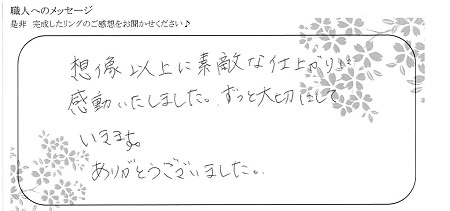 職人へのメッセージ
是非 完成したリングのご感想をお聞かせください♪
想像以上に素敵な仕上がりで
感動いたしました。ずっと大切にして
いきます。
ありがとうございました。